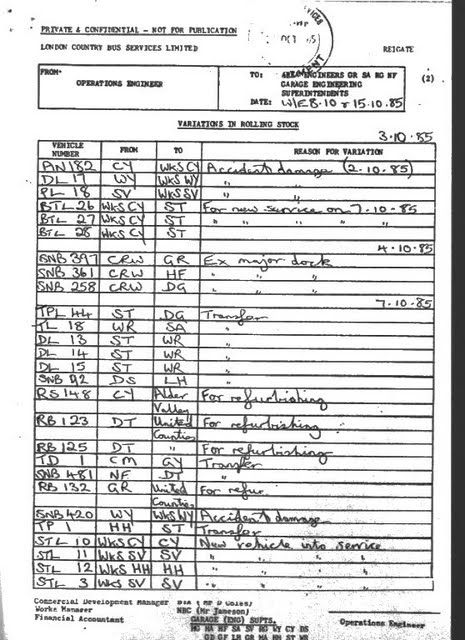 PRIVATE & CONFIDENTIAL - NOT FOR PUBLICATION
LONDON COUNTRY BUS SERVICES LIMITED REIGATE
FROM- OPERATIONS ENGINEER
TO: AREA ENGINEERS GR SA RG HF (2)
GARAGE ENGINEERING
SUPERINTENDENTS
DATE: W/E 8.10 & 15.10.85
VARIATIONS IN ROLLING STOCK
3.10.85
VEHICLE NUMBER FROM TO REASON FOR VARIATION
AN 182 CY WKS CY Accident damage (2.10.85)
DL 17 WY WKS WY "
PL 18 SV WKS SV "
BTL 26 WKS CY ST For new service on 7.10.85
BTL 27 WKS CY ST " " " " "
BTL 28 WKS CY ST
4.10.85
SNB 397 CRW GR Ex major dock
SNB 361 CRW HF " " "
SNB 258 CRW DG " "
7.10.85
TPL 44 ST DG Transfer
TL 18 WR SA "
DL 13 ST WR "
DL 14 ST WR "
DL 15 ST WR "
SNB 92 DS LH "
RS 148 CY Alder For refurbishing
Valley
RB 123 DT United For refurbishing
Counties
RB 125 DT " For refurbishing
TD 1 CM GY Transfer
SNB 481 NF DT "
RB 132 GR United For refur
Counties
SNB 420 WY WKS WY Accident damage
TP 1 HH ST Transfer
STL 10 WKS CY CY New vehicle into service
STL 11 WKS SV SV " " " "
STL 12 WKS HH HH " " " "
STL 3 WKS SV SV " " " "
Commercial Development Manager
Works Manager NBC (Mr Jameson)
Financial Accountant GARAGE (ENG) SUPTS. Operations Engineer